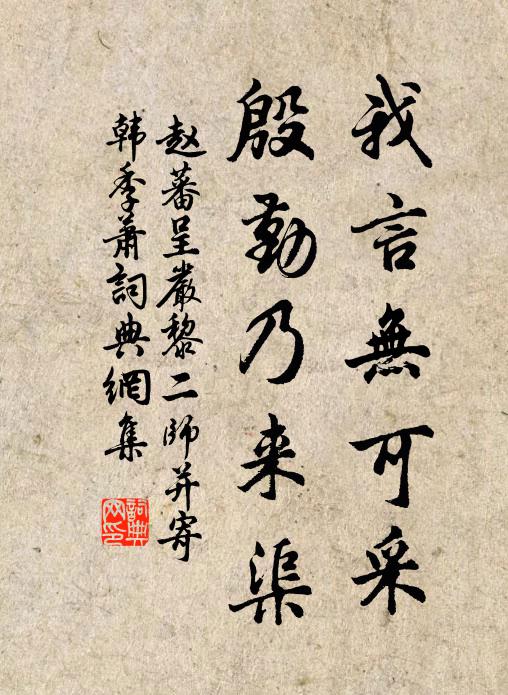 我言無可采
殷勤乃来渠
赵蕃呈嚴黎二師并寄
韓季蕭詞典網集
詞典
网印